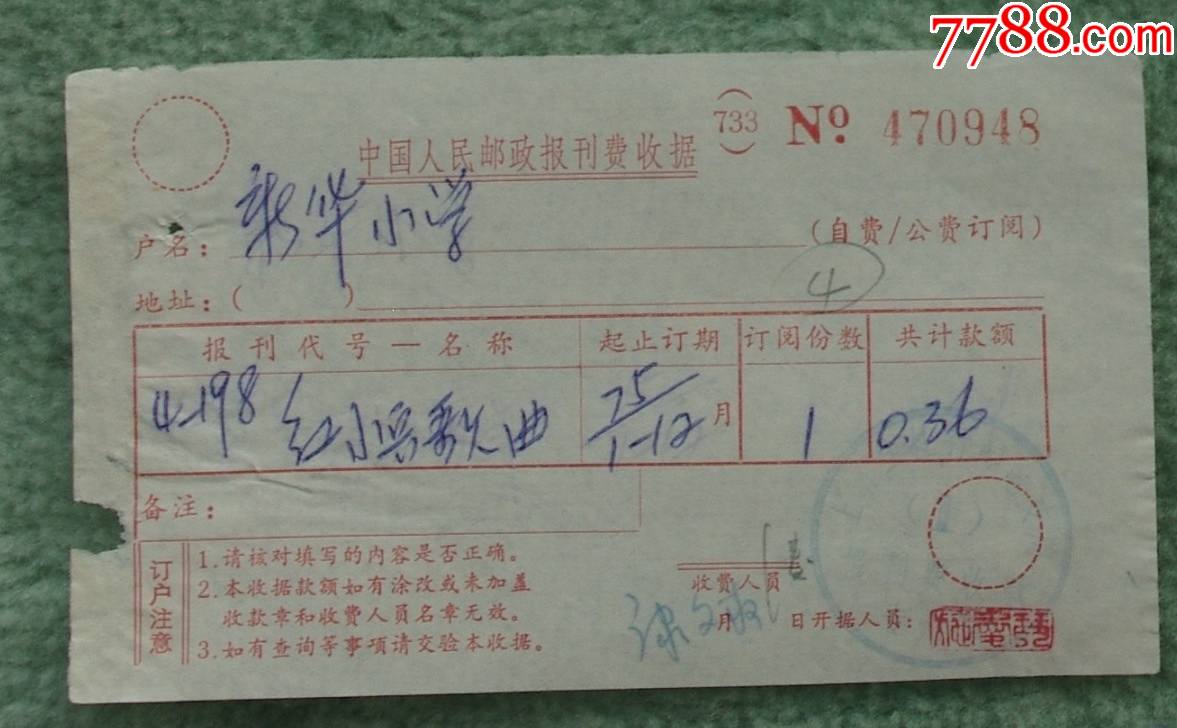 7788.com
中国人民邮政报刊费收据 (733) No 470948
户名: 新华小学 (自费/公费订阅)
地址:( ) 4
报刊代号—名称 起止订期 订阅份数 共计款额
4-198 红小兵歌曲 75/1-12月 1 0.36
备注:
订户注意
1.请核对填写的内容是否正确。
2.本收据款额如有涂改或未加盖
收款章和收费人员名章无效。
3.如有查询等事项请交验本收据。
收费人员
月 日开据人员: